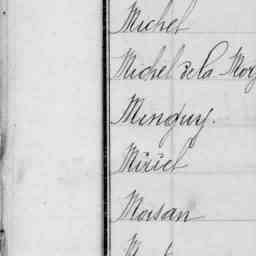 Michel
Michel de la Mor
Minguy.
Miriel
Moisan